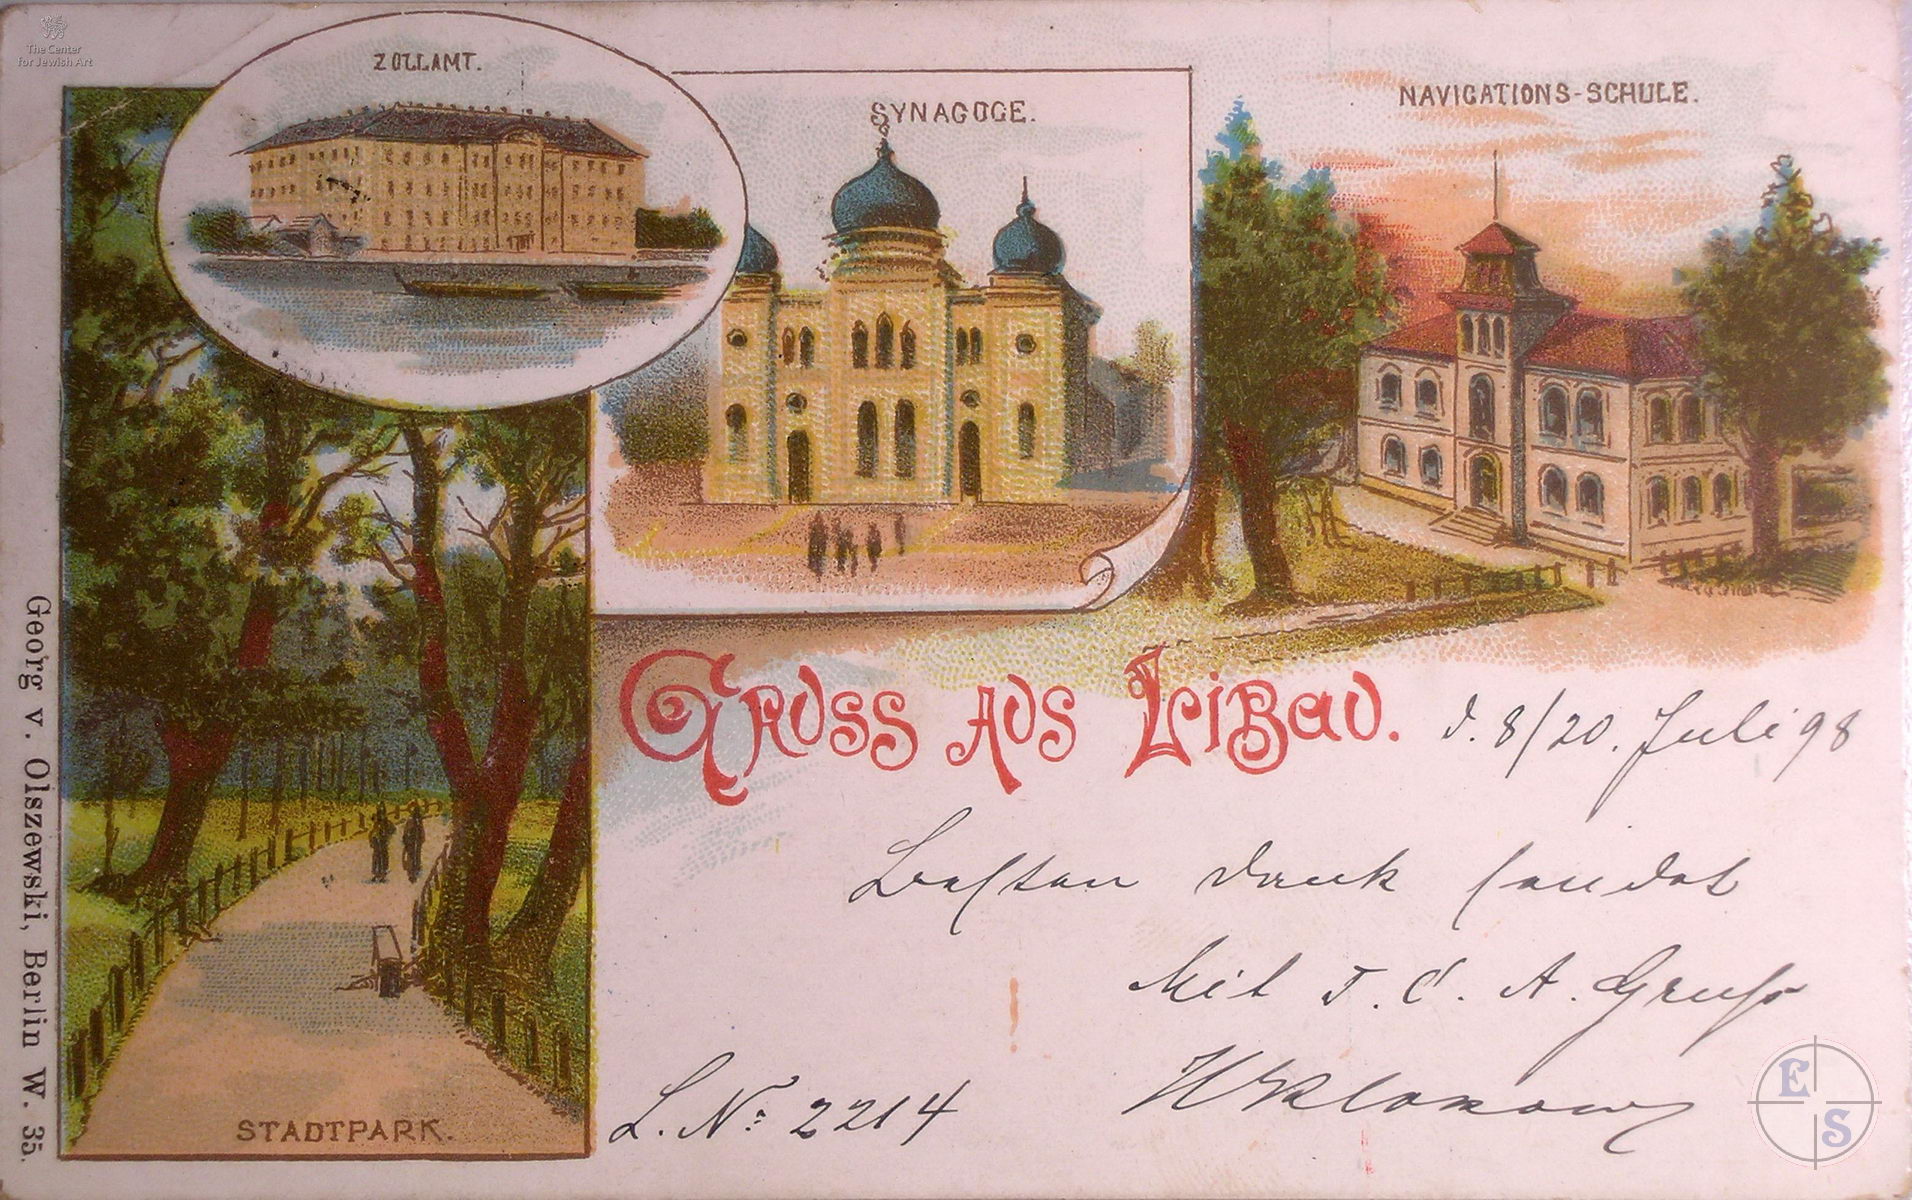 The Center
for Jewish Art
ZOLLAMT.
SYNAGOGE.
NAVIGATIONS-SCHULE.
Gruss aus Libau.
d. 8/20. Juli 98
Besten Dank sendet
Mit T. C. A. Gruß
L. No: 2214
STADTPARK.
Georg v. Olszewski, Berlin W. 35.
E
S